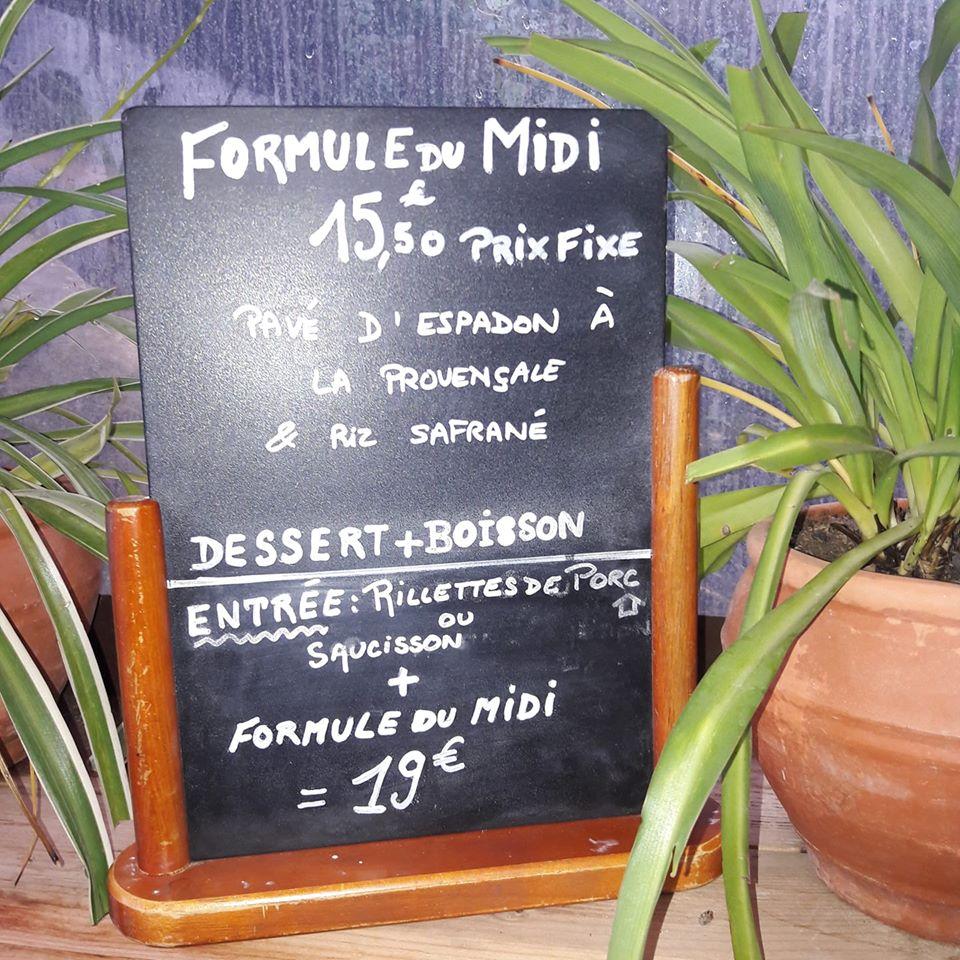 FORMULE DU MiDi
15,50€ PRIX FIXE
PAVÉ D'ESPADON À
LA PROVENÇALE
& RIZ SAFRANÉ
DESSERT + BOISSON
ENTRÉE: RILLETTES DE PORC
OU
SAUCISSON
+
FORMULE DU MiDi
= 19€